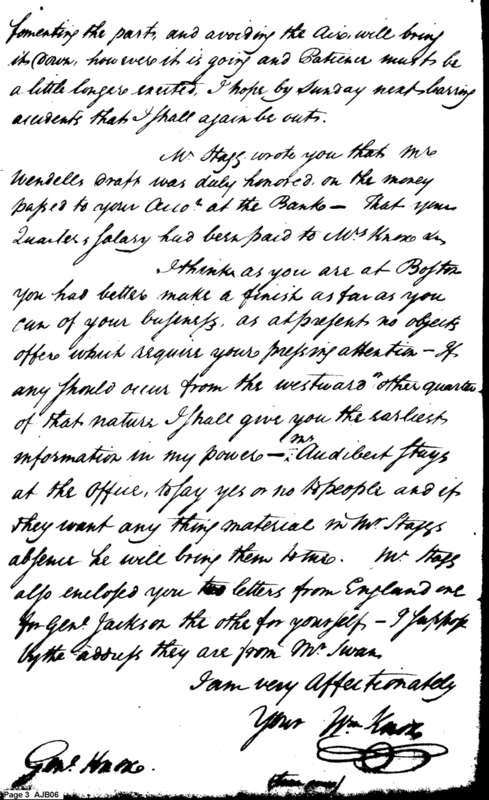 fomenting the part, and avoiding the Air, will bring
it down, however it is going and Patience must be
a little longer exerted, I hope by Sunday next barring
accidents that I shall again be out.
Mr Stagg wrote you that Mr
Wendells Draft was duly honored, on the money
passed to your Accot at the Bank — That your
Quarters Salary had been paid to Mrs Knox &c
I think as you are at Boston
you had better make a finish as far as you
can of your business, as at present no objects
offer which require your pressing attention — If
any should occur from the westward or other quarter
of that nature I shall give you the earliest
information in my power — Mr Audibert Stays
at the Office, to say yes or no to people and if
they want any thing material in Mr Staggs
absence he will bring them to me. Mr Stagg
also enclosed you letters from England one
for Genl Jackson the other for yourself — I suppose
by the address they are from Mr Swan
I am very Affectionately
Your Wm Knox
Genl Knox.
Page 3 AJB06